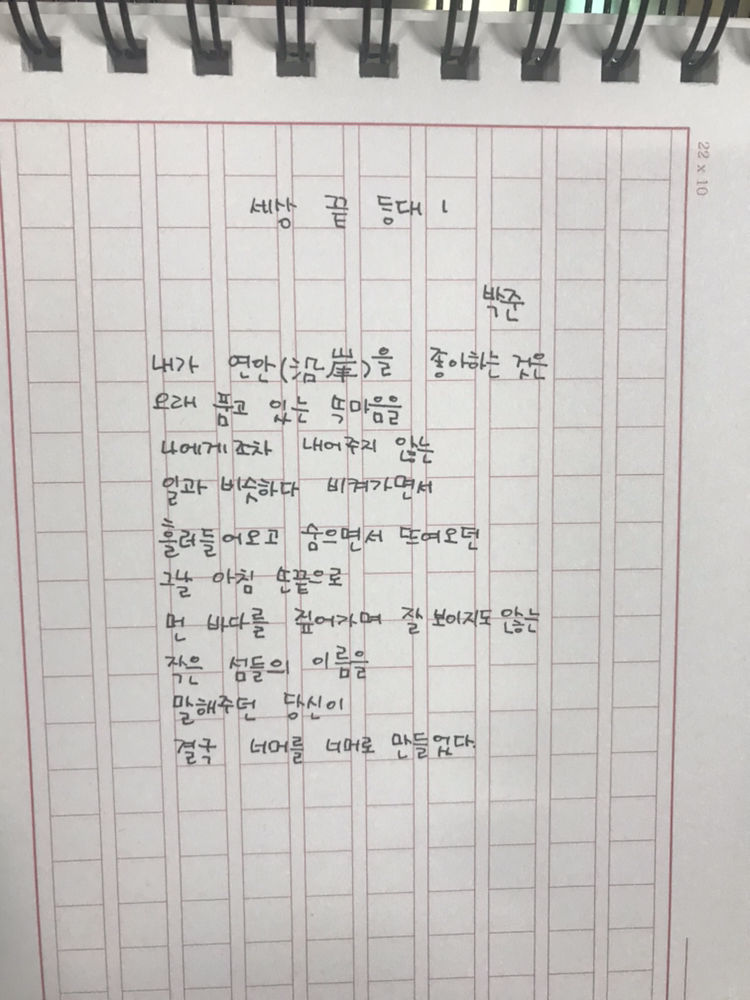 22 x 10
세상 끝 등대 1
박준
내가 연안(沿岸)을 좋아하는 것은
오래 품고 있는 속마음을
나에게조차 내어주지 않는
일과 비슷하다 비켜가면서
흘러들어오고 숨으면서 뜨여오던
그날 아침 손끝으로
먼 바다를 짚어가며 잘 보이지도 않는
작은 섬들의 이름을
말해주던 당신이
결국 너머를 너머로 만들었다.